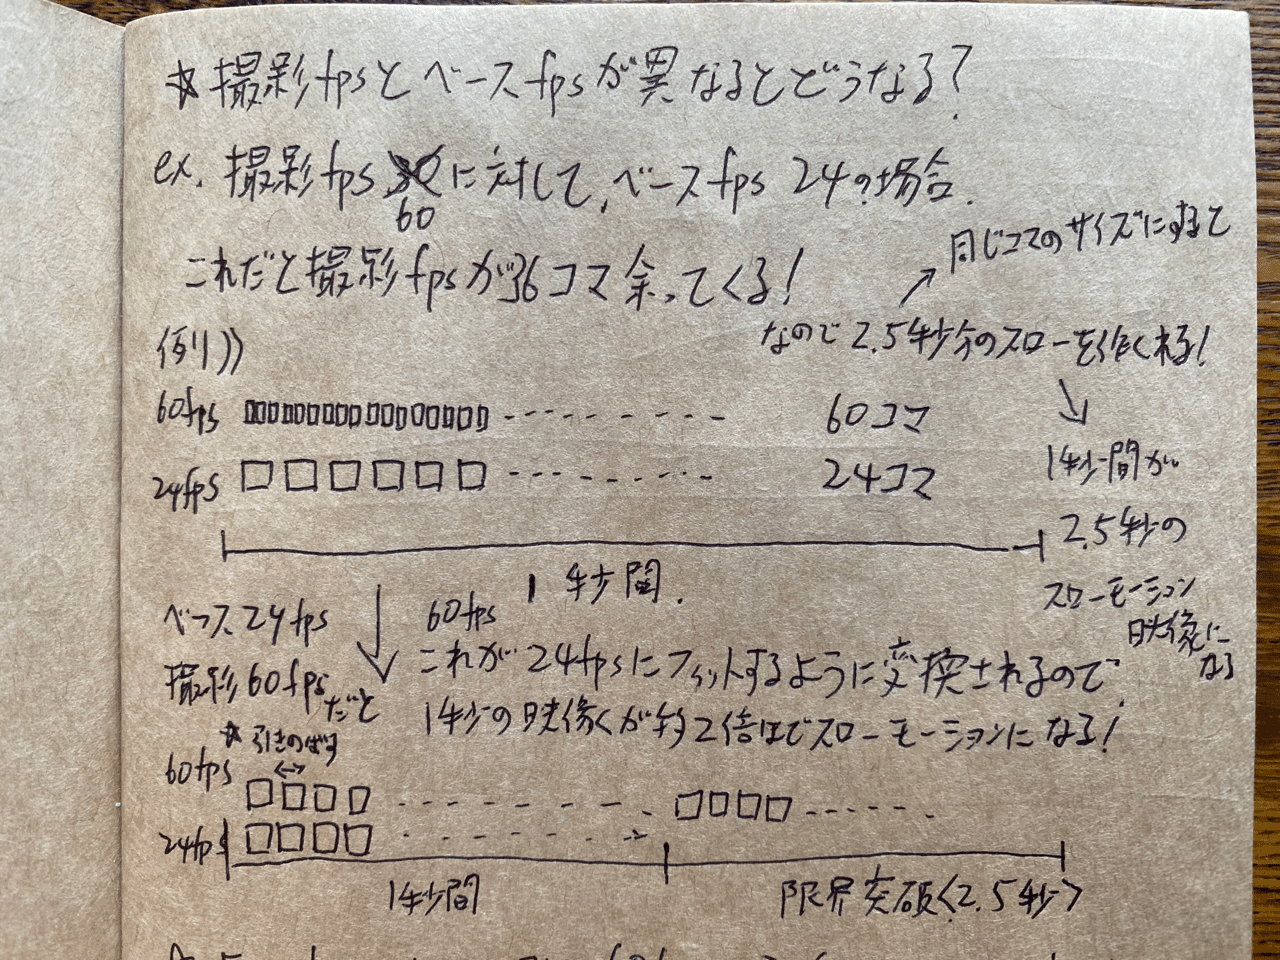 ☆撮影fpsとベースfpsが異なるとどうなる?
ex. 撮影fps 30に対して、ベースfps 24の場合.
60
これだと撮影fpsが36コマ余ってくる!
同じコマのサイズにすると
なので2.5秒分のスローを作くれる!
例))
60fps 60コマ
24fps 24コマ
1秒間が
2.5秒の
スローモーション
映像に
なる
1秒間.
ベース24fps
撮影60fpsだと
60fps
これが24fpsにフィットするように変換されるので、
1秒の映像くが約2倍ほどスローモーションになる!
☆引きのばす
60fps
24fps
1秒間
限界突破<2.5秒>